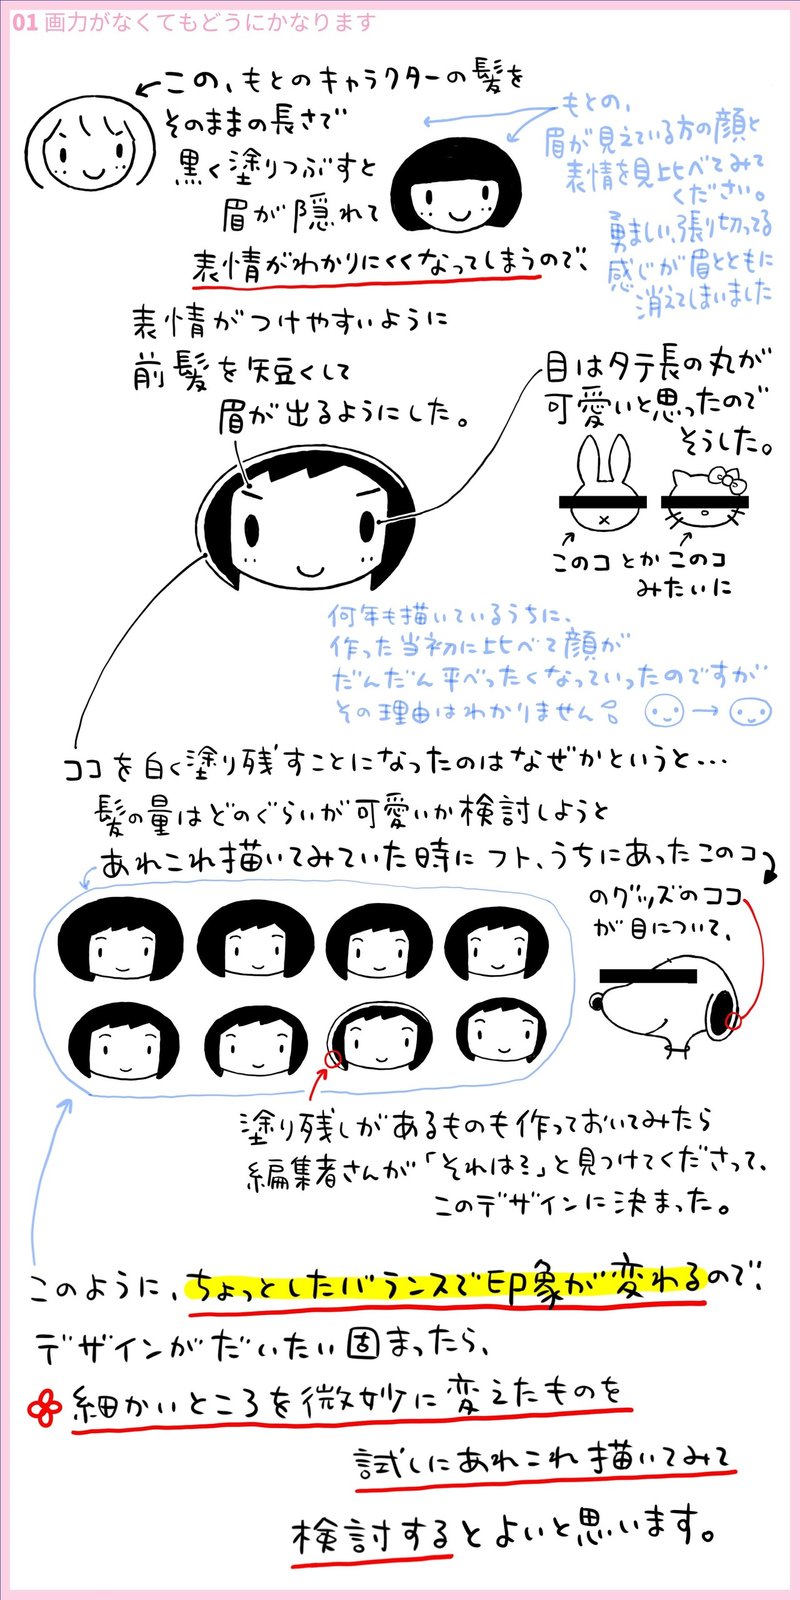 01 画力がなくてもどうにかなります
この、もとのキャラクターの髪を
そのままの長さで
黒く塗りつぶすと
眉が隠れて
表情がわかりにくくなってしまうので、
もとの、
眉が見えている方の顔と
表情を見比べてみて
ください。
勇ましい、張り切ってる
感じが眉とともに
消えてしまいました
表情がつけやすいように
前髪を短くして
眉が出るようにした。
目はタテ長の丸が
可愛いと思ったので
そうした。
このコ とか このコ
みたいに
何年も描いているうちに、
作った当初に比べて顔が
だんだん平べったくなっていったのですが
その理由はわかりません。
ココを白く塗り残すことになったのはなぜかというと…
髪の量はどのぐらいが可愛いか検討しようと
あれこれ描いてみていた時に フト、うちにあったこのコ
のグッズのココ
が目について、
塗り残しがあるものも作っておいてみたら
編集者さんが「それは?」と見つけてくださって、
このデザインに決まった。
このように、ちょっとしたバランスで印象が変わるので、
デザインがだいたい固まったら、
細かいところを微妙に変えたものを
試しにあれこれ描いてみて
検討するとよいと思います。